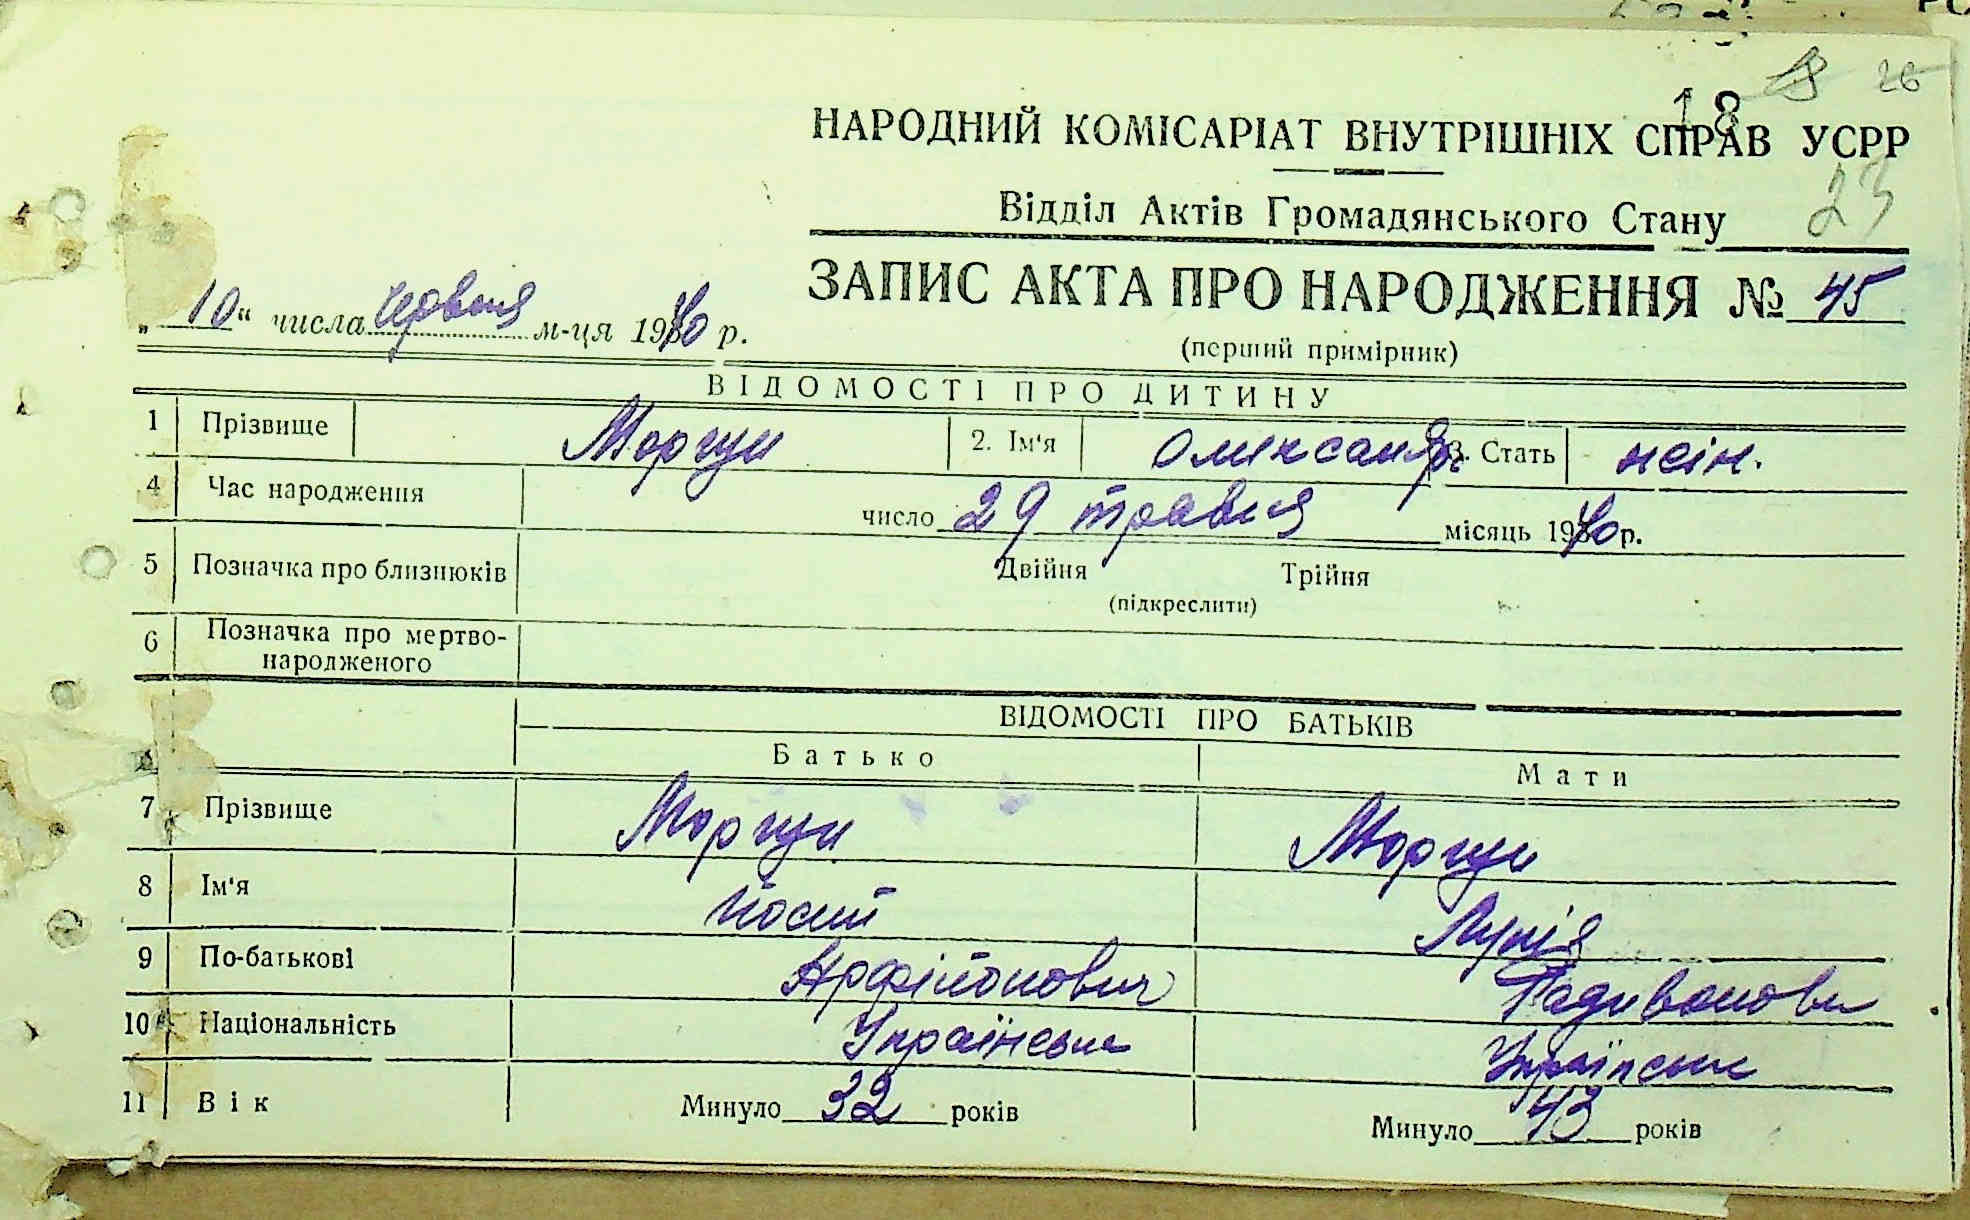 18 26
НАРОДНИЙ КОМІСАРІАТ ВНУТРІШНІХ СПРАВ УСРР
23
Відділ Актів Громадянського Стану
ЗАПИС АКТА ПРО НАРОДЖЕННЯ № 45
„10“ числа червня м-ця 1940 р.
(перший примірник)
ВІДОМОСТІ ПРО ДИТИНУ
1 Прізвище 2. Ім'я Олександра 3. Стать жін.
4 Час народження число 29 травня місяць 1940 р.
5 Позначка про близнюків Двійня Трійня
(підкреслити)
6 Позначка про мертво-
народженого
ВІДОМОСТІ ПРО БАТЬКІВ
Батько Мати
7 Прізвище
8 Ім'я Йосип
9 По-батькові
10 Національність Українець Українка
11 Вік Минуло 32 років Минуло 43 років